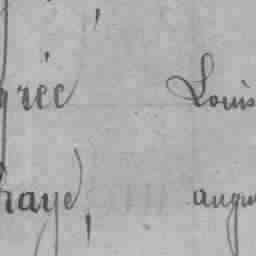 grée Louis
haye, augu